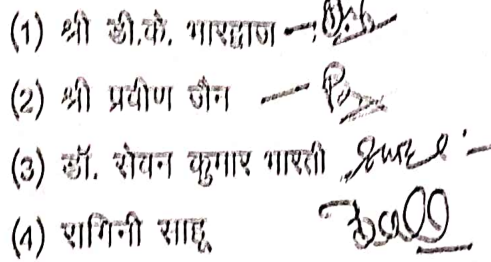 (1) श्री डी.के. भारद्वाज —
(2) श्री प्रवीण जैन —
(3) डॉ. सेवन कुमार भारती
(4) रागिनी साहू